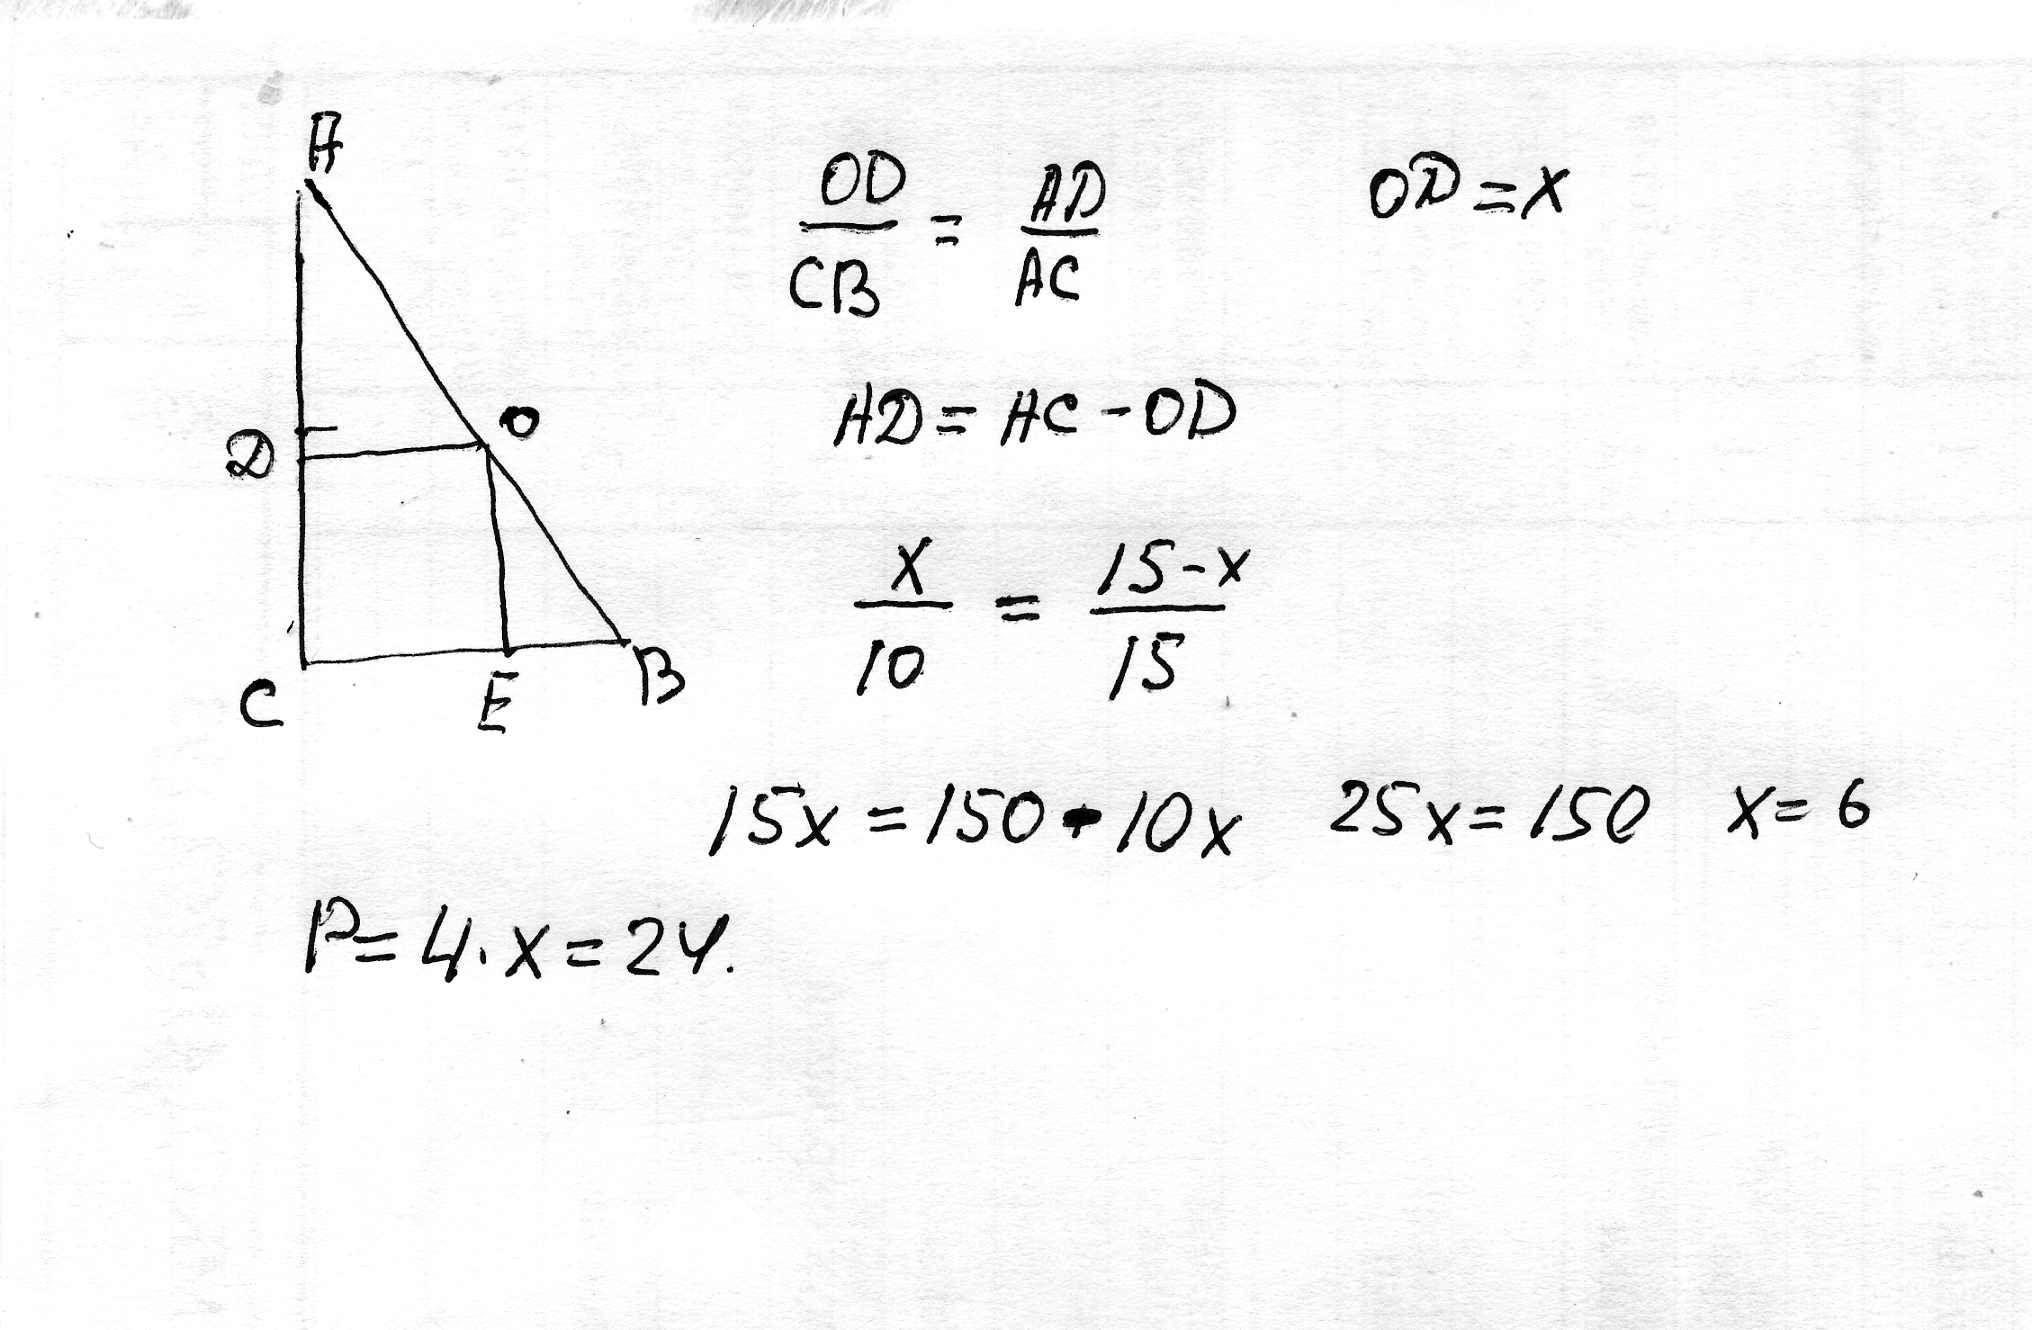 A
D
O
C
E
B
OD/CB = AD/AC OD = x
AD = AC - OD
x/10 = 15-x/15
15x = 150 - 10x 25x = 150 x = 6
P = 4 · x = 24.